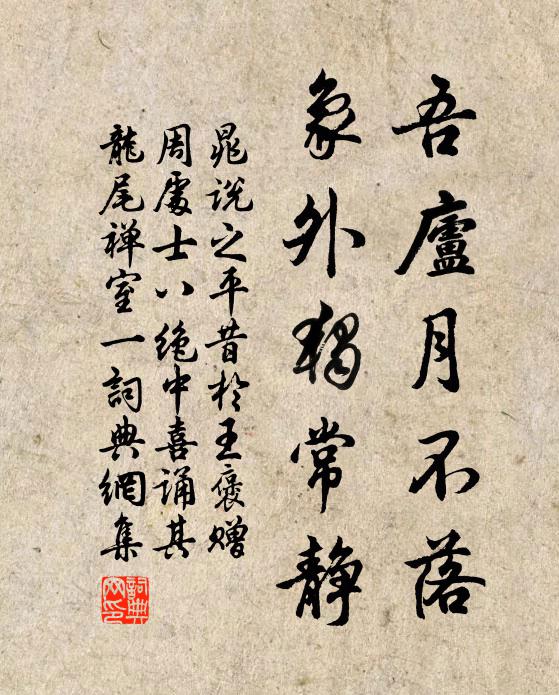 吾廬月不落
象外獨常靜
晁說之平昔於王褒贈
周處士八絕中喜誦其
龍尾禅室一詞典網集
詞典网印